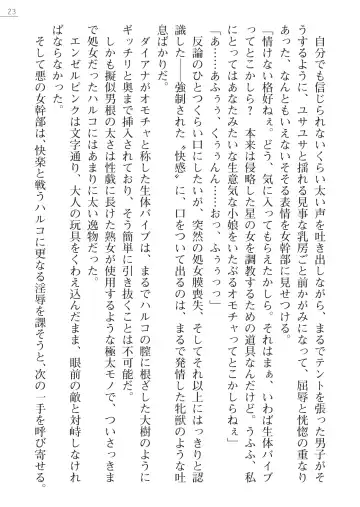 23
自分でも信じられないくらい太い声を吐き出しながら、まるでテントを張った男子がそ
うするように、ユサユサと揺れる見事な乳房ごと前かがみになって、屈辱と恍惚の重なり
あった、なんともいえないそそる表情を女幹部に見せつける。
「情けない格好ねぇ。どう、気に入ってもらえたかしら。それはまぁ、いわば生体バイブ
ってとこかしら？　本来は侵略した星の女を調教するための道具なんだけど。うふふ、私
にとってはあなたみたいな生意気な小娘をいたぶるオモチャってとこかしらねぇ」
「あ……あふぅぅ、くぅぅんん……おっ、ふぅぅっっ」
　反論のひとつくらい口にしたいが、突然の処女膜喪失、そしてそれ以上にはっきりと認
識した――強制された〝快感〟に、口をついて出るのは、まるで発情した牝獣のような吐
息ばかりだ。
　ダイアナがオモチャと称した生体バイブは、まるでハルコの膣に根ざした大樹のように
ギッチリと奥まで挿入されており、そう簡単に引き抜くことは不可能だ。
　しかも擬似男根の太さは性戯に長けた熟女が使用するような極太モノで、ついさっきま
で処女だったハルコにはあまりに太い逸物だった。
　エンゼルピンクは文字通り、大人の玩具をくわえ込んだまま、眼前の敵と対峙しなけれ
ばならなかった。
　そして悪の女幹部は、快楽と戦うハルコに更なる淫辱を課そうと、次の一手を呼び寄せる。